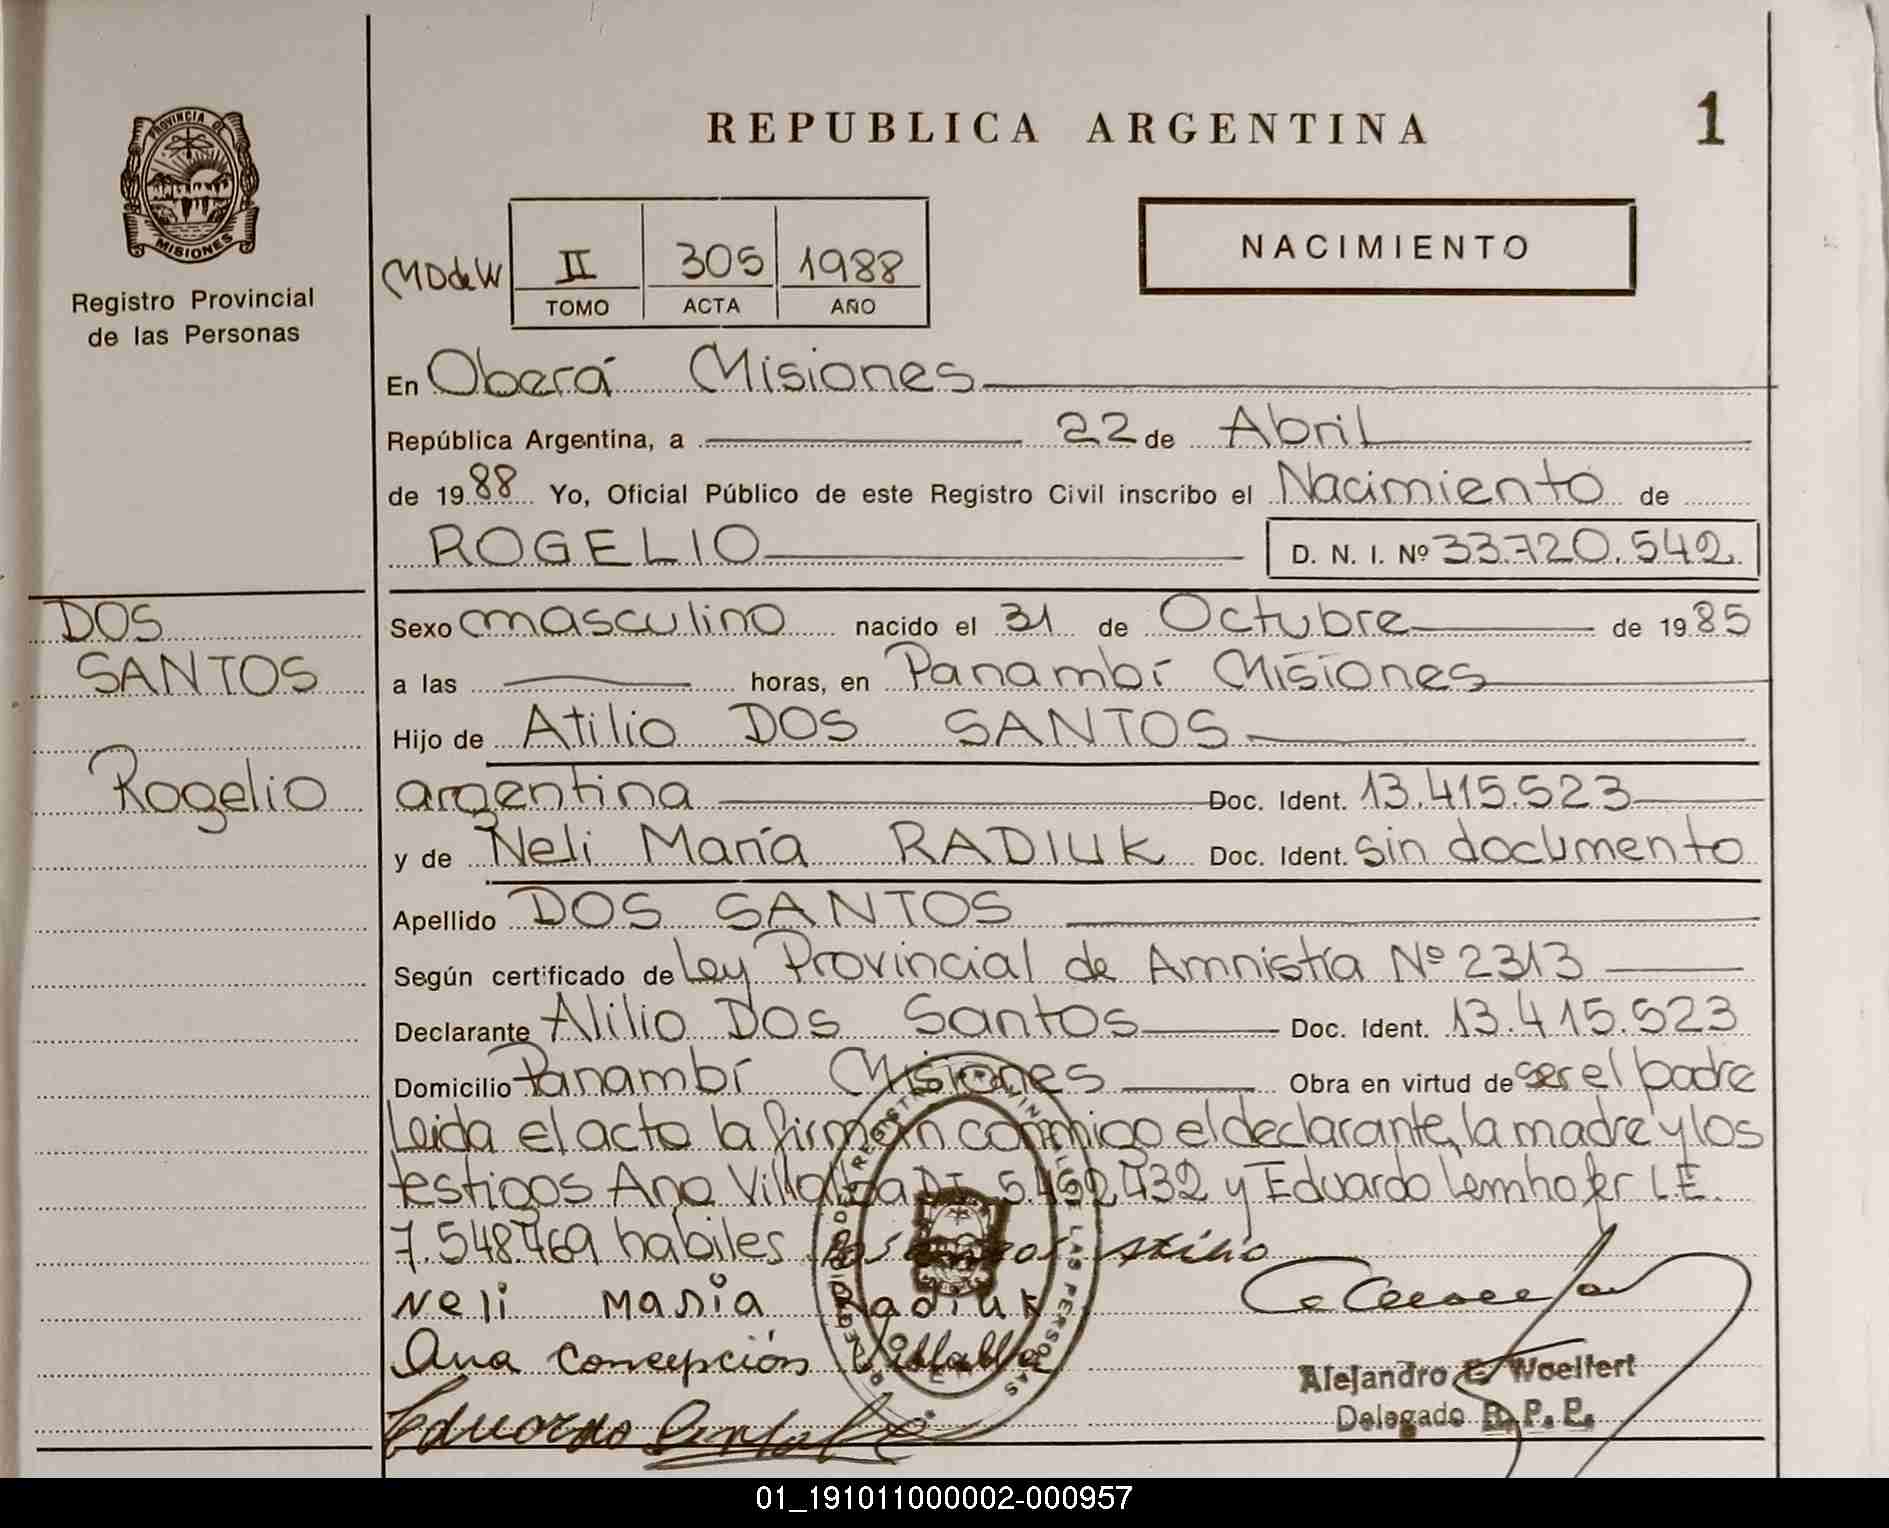 PROVINCIA DE
MISIONES
Registro Provincial
de las Personas
REPUBLICA ARGENTINA
1
NACIMIENTO
MDdeW
II 305 1988
TOMO ACTA AÑO
En Oberá Misiones
República Argentina, a 22 de Abril
de 1988 Yo, Oficial Público de este Registro Civil inscribo el Nacimiento de
ROGELIO D. N. I. Nº 33.720.542
DOS
SANTOS
Rogelio
Sexo masculino nacido el 31 de Octubre de 1985
a las horas, en Panambí Misiones
Hijo de Atilio DOS SANTOS
argentina Doc. Ident. 13.415.523
y de Neli María RADIUK Doc. Ident. sin documento
Apellido DOS SANTOS
Según certificado de Ley Provincial de Amnistía Nº 2313
Declarante Atilio Dos Santos Doc. Ident. 13.415.523
Domicilio Panambí Misiones Obra en virtud de ser el padre
Leida el acto la firman conmigo el declarante, la madre y los
testigos Ana Villalba DI 5.492.732 y Eduardo Lemhofer L.E.
7.548.769 habiles
Neli Maria Radiuk
Ana Concepción Villalba
Eduardo
Alejandro E. Woelfert
Delegado R. P. P.
01_191011000002-000957